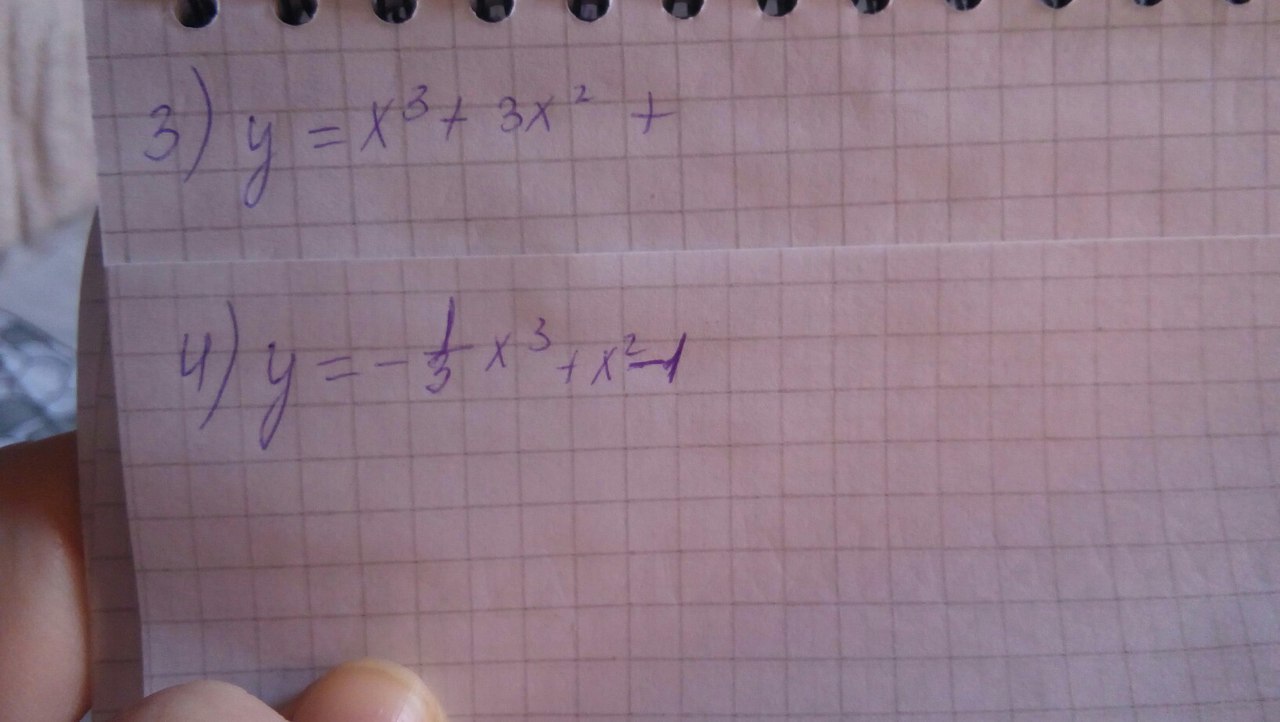 3) y = x³ + 3x² +
4) y = - 1/3 x³ + x² - 1